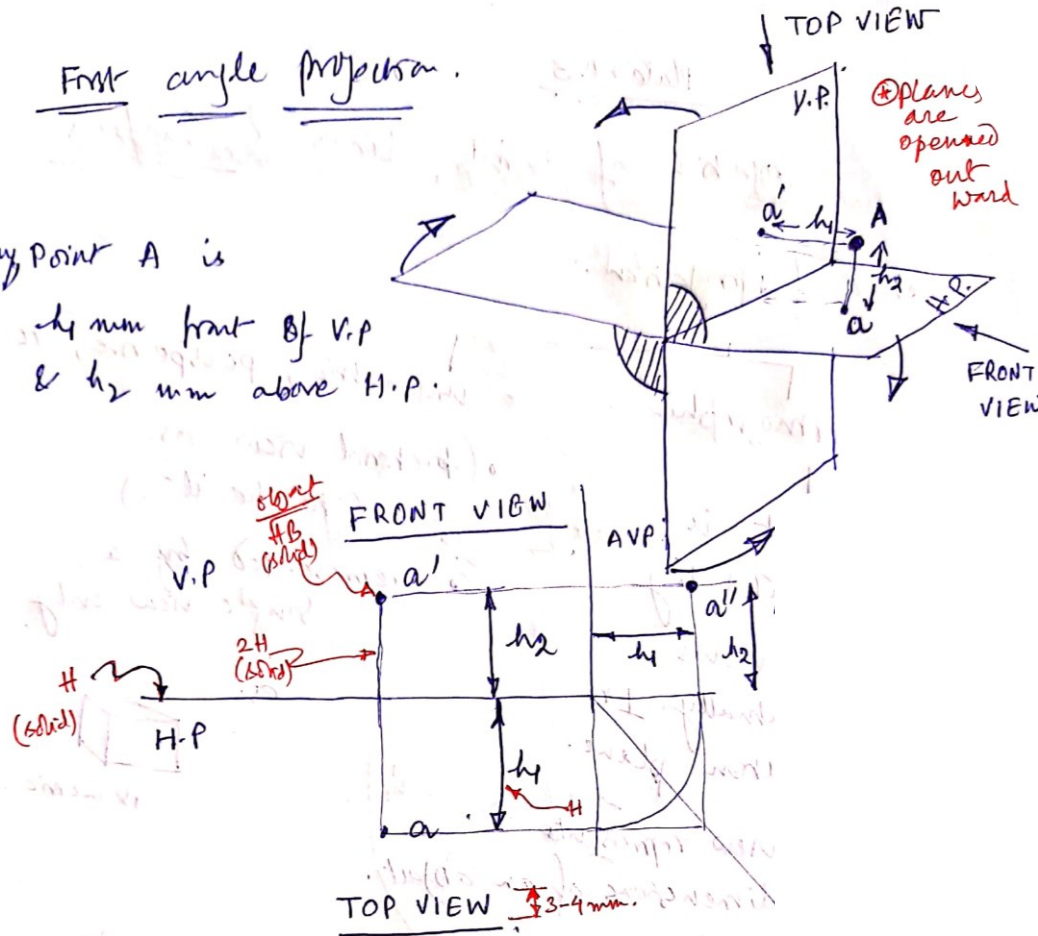 First angle projection.
TOP VIEW
V.P.
⊛ planes
are
openned
out
ward
a' h1 A
h2
a
H.P.
FRONT
VIEW
Point A is
h1 mm front of V.P
& h2 mm above H.P.
object
HB
(solid)
FRONT VIEW
AVP
V.P
a'
a''
h2
h1
h2
2H
(solid)
H
(solid)
H.P
h1
H
a
TOP VIEW
3-4 mm.